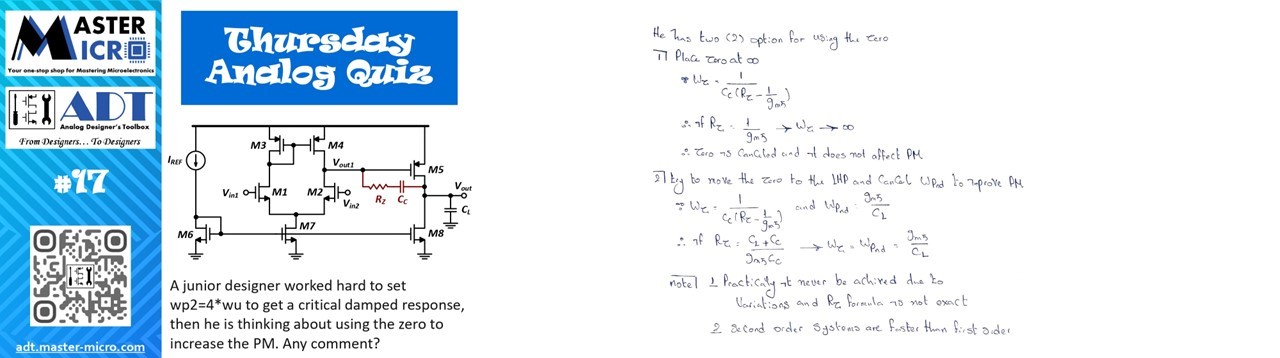 MASTER
MICRO
Your one-stop shop for Mastering Microelectronics
ADT
Analog Designer's Toolbox
From Designers... To Designers
#17
adt.master-micro.com
Thursday
Analog Quiz
M3
M4
IREF
Vout1
M5
Vin1
M1
M2
Vin2
RZ
CC
Vout
CL
M6
M7
M8
A junior designer worked hard to set
wp2=4*wu to get a critical damped response,
then he is thinking about using the zero to
increase the PM. Any comment?
He has two (2) option for using the zero
1) Place zero at ∞
∵ Wz = 1 / Cc(Rz - 1/gm5)
∴ if Rz = 1/gm5 → Wz → ∞
∴ zero is Cancled and it does not affect PM
2) try to move the zero to the LHP and Cancel Wpnd to improve PM
∵ Wz = 1 / Cc(Rz - 1/gm5) and Wpnd = gm5/CL
∴ if Rz = CL + Cc / gm5 Cc → Wz = Wpnd = gm5/CL
note 1 Practically it never be achived due to
Variations and Rz formula is not exact
2 Second order systems are faster than first order